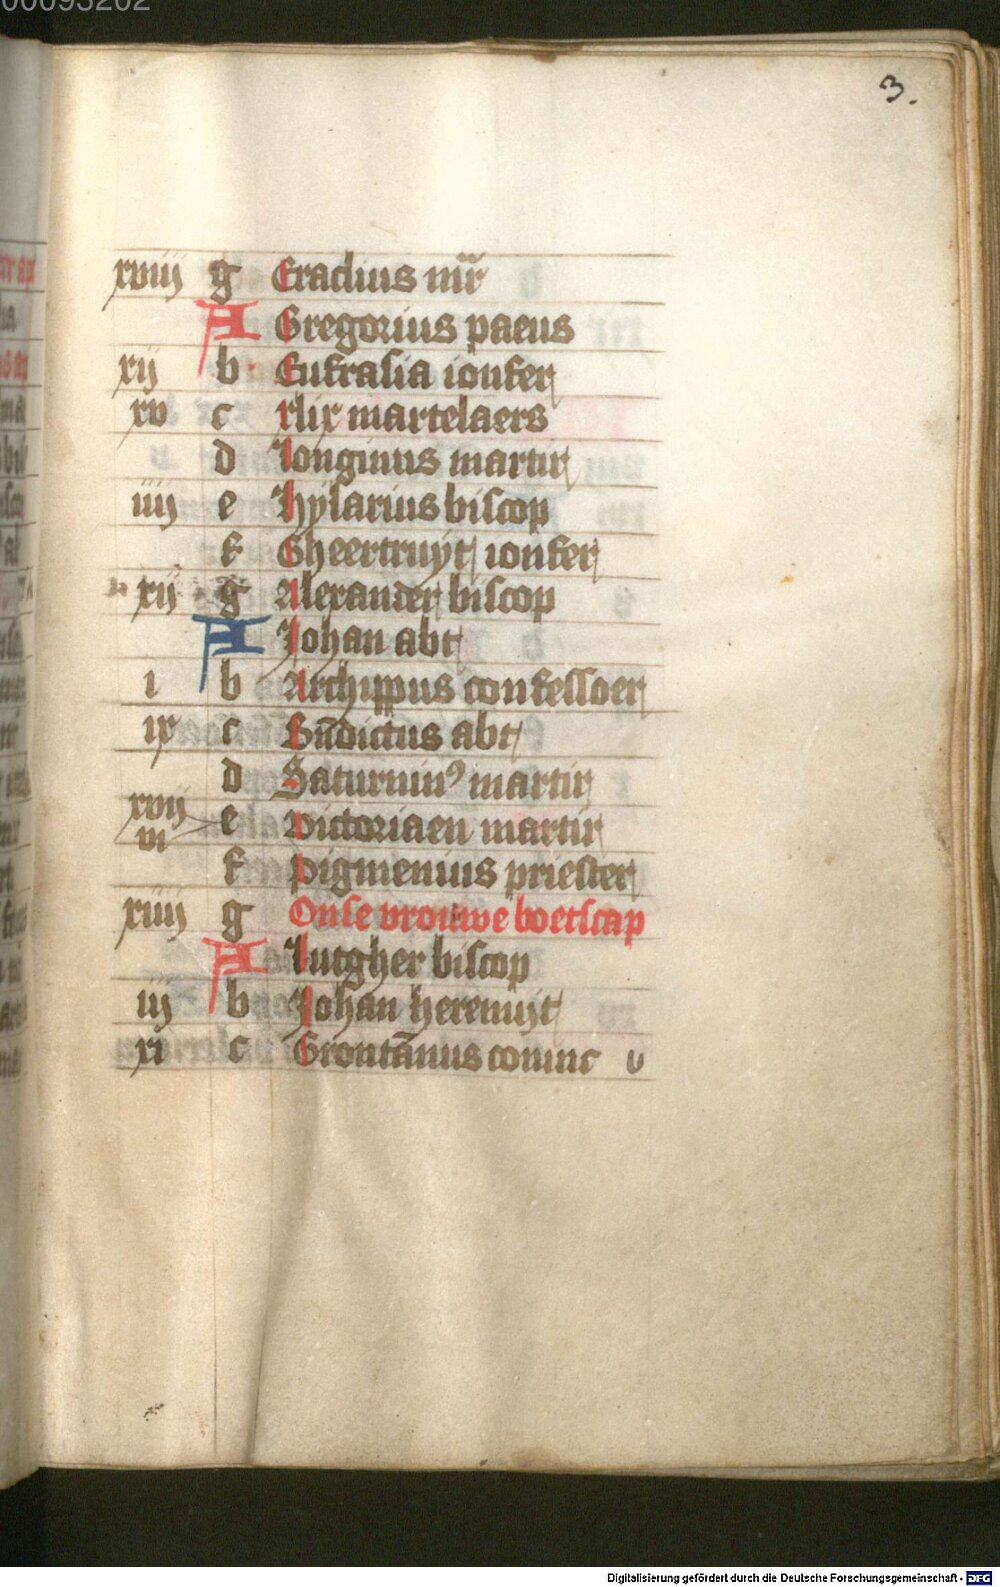 00093202
3.
xviij g Eradius mr̄
A Gregorius paeus
xij b Eufrasia ionfer
xv c xlix martelaers
d Longinus martir
iiij e Hylarius biscop
f Gheertruyt ionfer
xij g Alexander biscop
A Johan abt
i b Archippus confessoer
ix c Bn̄dictus abt
d Saturninꝰ martir
xvij e Victoriaen martir
vi
f Pigmenius priester
xiiij g Onse vrouwe boetscap
A Lutgher biscop
iij b Johan heremijt
xi c Grontānus coninc
Digitalisierung gefördert durch die Deutsche Forschungsgemeinschaft - DFG